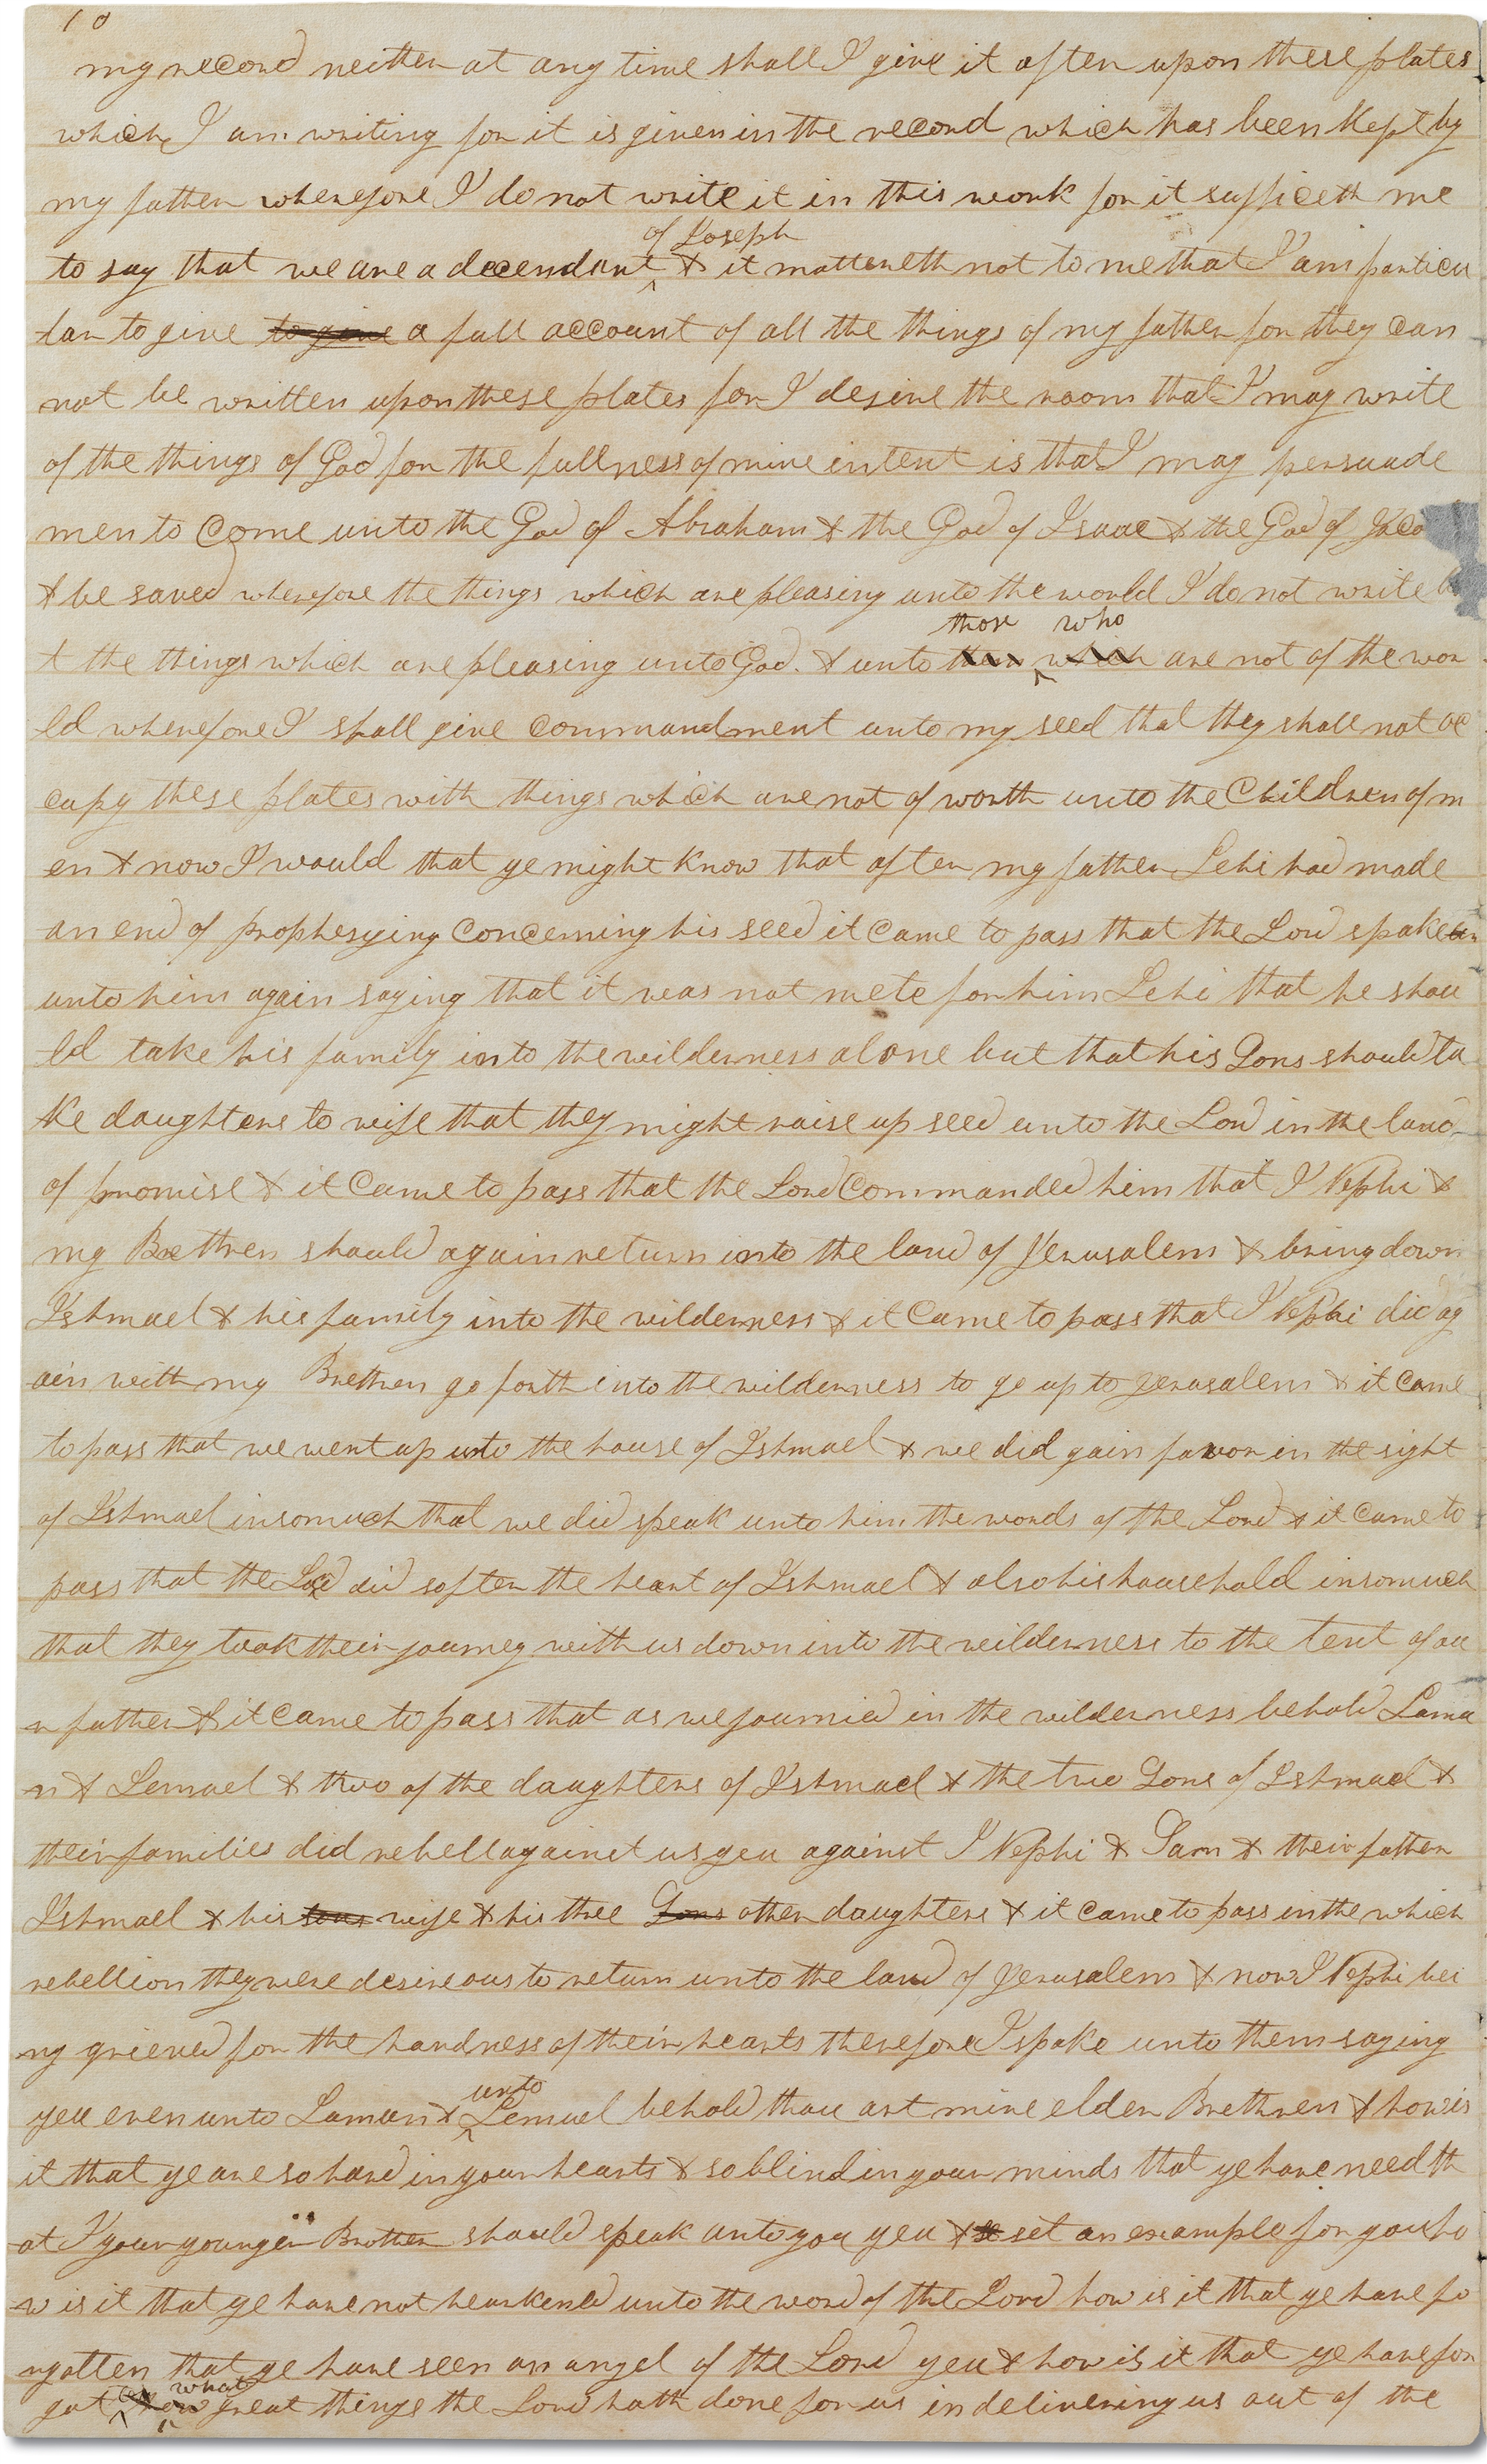 10
my record neither at any time shall I give it after upon these plates
which I am writing for it is given in the record which has been kept by
my father wherefore I do not write it in this work for it sufficeth me
of Joseph
to say that we are a decendant & it mattereth not to me that I am particu
lar to give to give a full account of all the things of my father for they can
not be written upon these plates for I desire the room that I may write
of the things of God for the fullness of mine intent is that I may persuade
men to come unto the God of Abraham & the God of Isaac & the God of Jaco
& be saved wherefore the things which are pleasing unto the world I do not write
those who
t the things which are pleasing unto God. & unto them which are not of the wor
ld wherefore I shall give commandment unto my seed that they shall not oc
cupy these plates with things which are not of worth unto the Children of m
en & now I would that ye might know that after my father Lehi had made
an end of prophesying concerning his seed it came to pass that the Lord spake un
unto him again saying that it was not mete for him Lehi that he shou
ld take his family into the wilderness alone but that his Sons should ta
ke daughters to wife that they might raise up seed unto the Lord in the land
of promise & it came to pass that the Lord commanded him that I Nephi &
my Brethren should again return into the land of Jerusalem & bring down
Ishmael & his family into the wilderness & it came to pass that I Nephi did ag
ain with my Brethren go forth into the wilderness to go up to Jerusalem & it came
to pass that we went up unto the house of Ishmael & we did gain favor in the sight
of Ishmael insomuch that we did speak unto him the words of the Lord & it came to
pass that the Lord did soften the heart of Ishmael & also his household insomuch
that they took their journey with us down into the wilderness to the tent of ou
r father & it came to pass that as we journied in the wilderness behold Lama
n & Lemuel & two of the daughters of Ishmael & the two Sons of Ishmael &
their families did rebell against us yea against I Nephi & Sam & their father
Ishmael & his sons wife & his three Sons other daughters & it came to pass in the which
rebellion they were desireous to return unto the land of Jerusalem & now I Nephi bei
ng grieved for the hardness of their hearts therefore I spake unto them saying
unto
yea even unto Laman & Lemuel behold thou art mine elder Brethren & how is
it that ye are so hard in your hearts & so blind in your minds that ye have need th
at I your younger Brother should speak unto you yea & set an example for you ho
w is it that ye have not hearkened unto the word of the Lord how is it that ye have fo
rgotten that ye have seen an angel of the Lord yea & how is it that ye have for
what
got how great things the Lord hath done for us in delivering us out of the